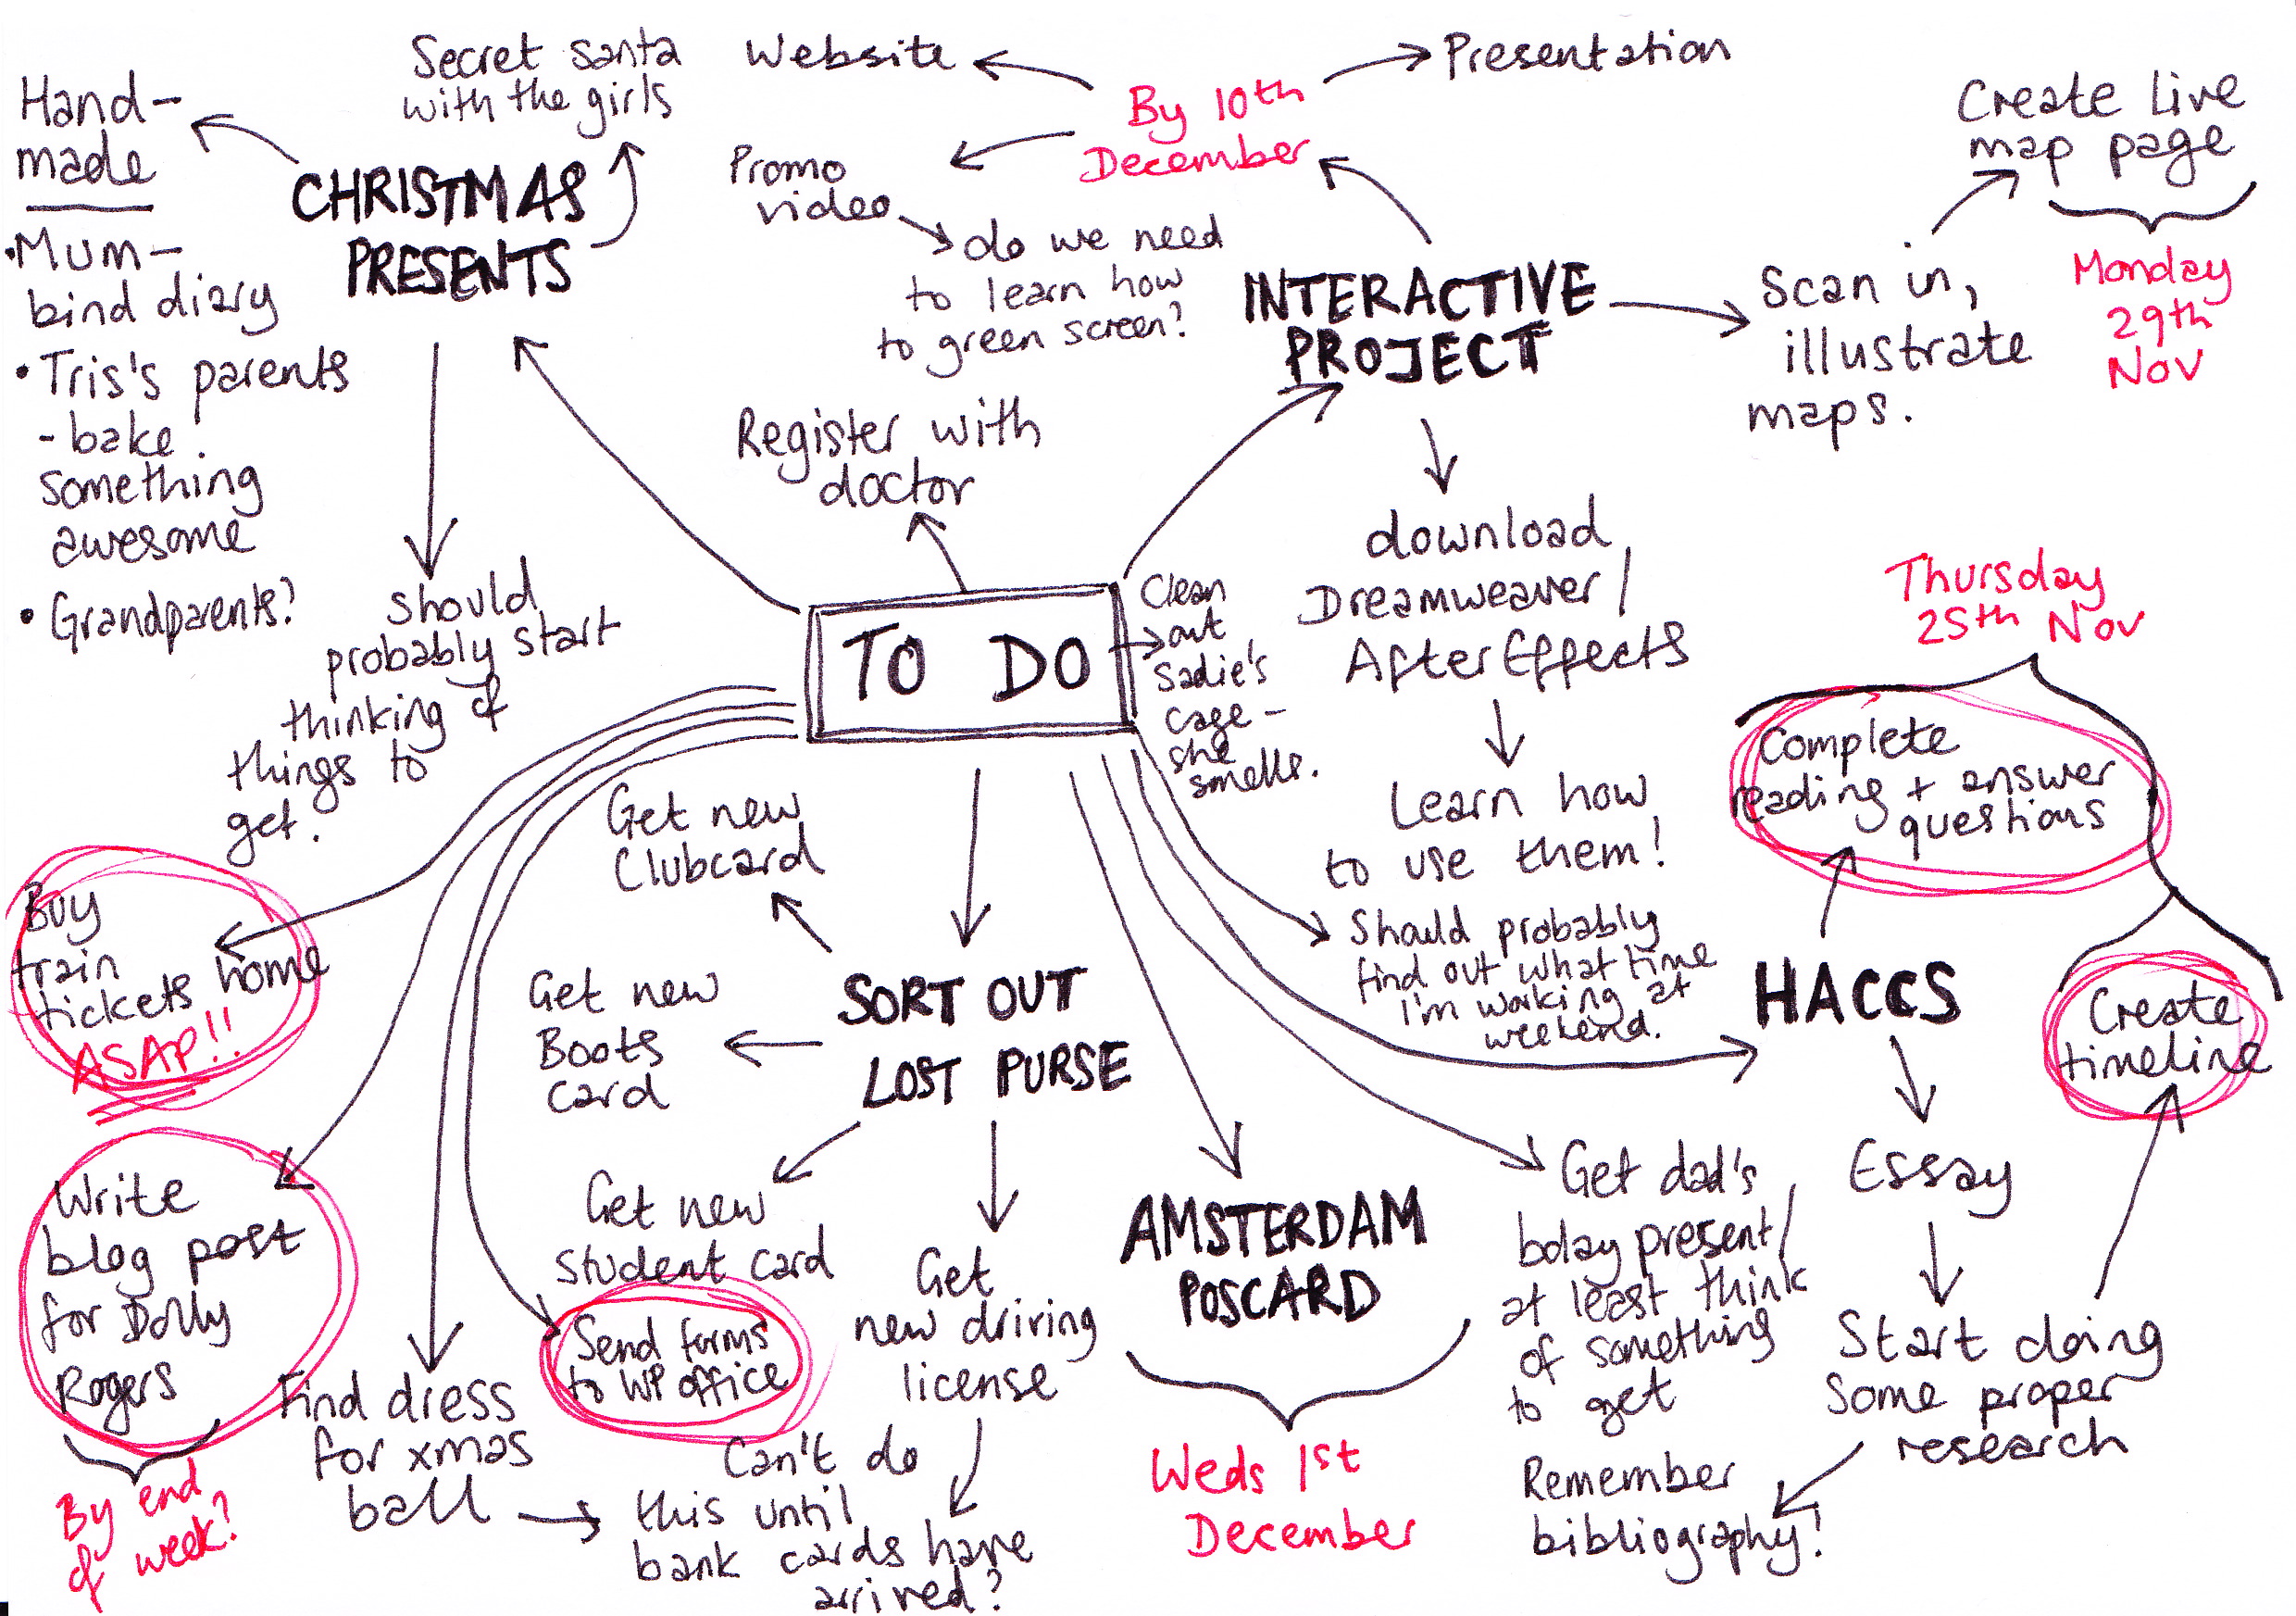 Hand-
made
•Mum-
bind diary
• Tris's parents
- bake
something
awesome
• Grandparents?
Secret santa
with the girls
CHRISTMAS
PRESENTS
should
probably start
thinking of
things to
get.
Website
By 10th
December
Presentation
Promo
video
do we need
to learn how
to green screen?
INTERACTIVE
PROJECT
Create live
map page
Monday
29th
Nov
Scan in,
illustrate
maps.
download
Dreamweaver/
AfterEffects
Learn how
to use them!
Register with
doctor
TO DO
Clean
out
Sadie's
cage -
she
smells.
Thursday
25th Nov
Complete
reading + answer
questions
HACCS
Create
timeline
Essay
Start doing
some proper
research
Remember
bibliography!
Should probably
find out what time
I'm working at
weekend.
Get dad's
bday present/
at least think
of something
to get
AMSTERDAM
POSCARD
Weds 1st
December
SORT OUT
LOST PURSE
Get new
Clubcard
Get new
Boots
card
Get new
student card
Get
new driving
license
Can't do
this until
bank cards have
arrived?
Send forms
to WP office
Find dress
for xmas
ball
Buy
train
tickets home
ASAP!!
Write
blog post
for Dolly
Rogers
By end
of week?